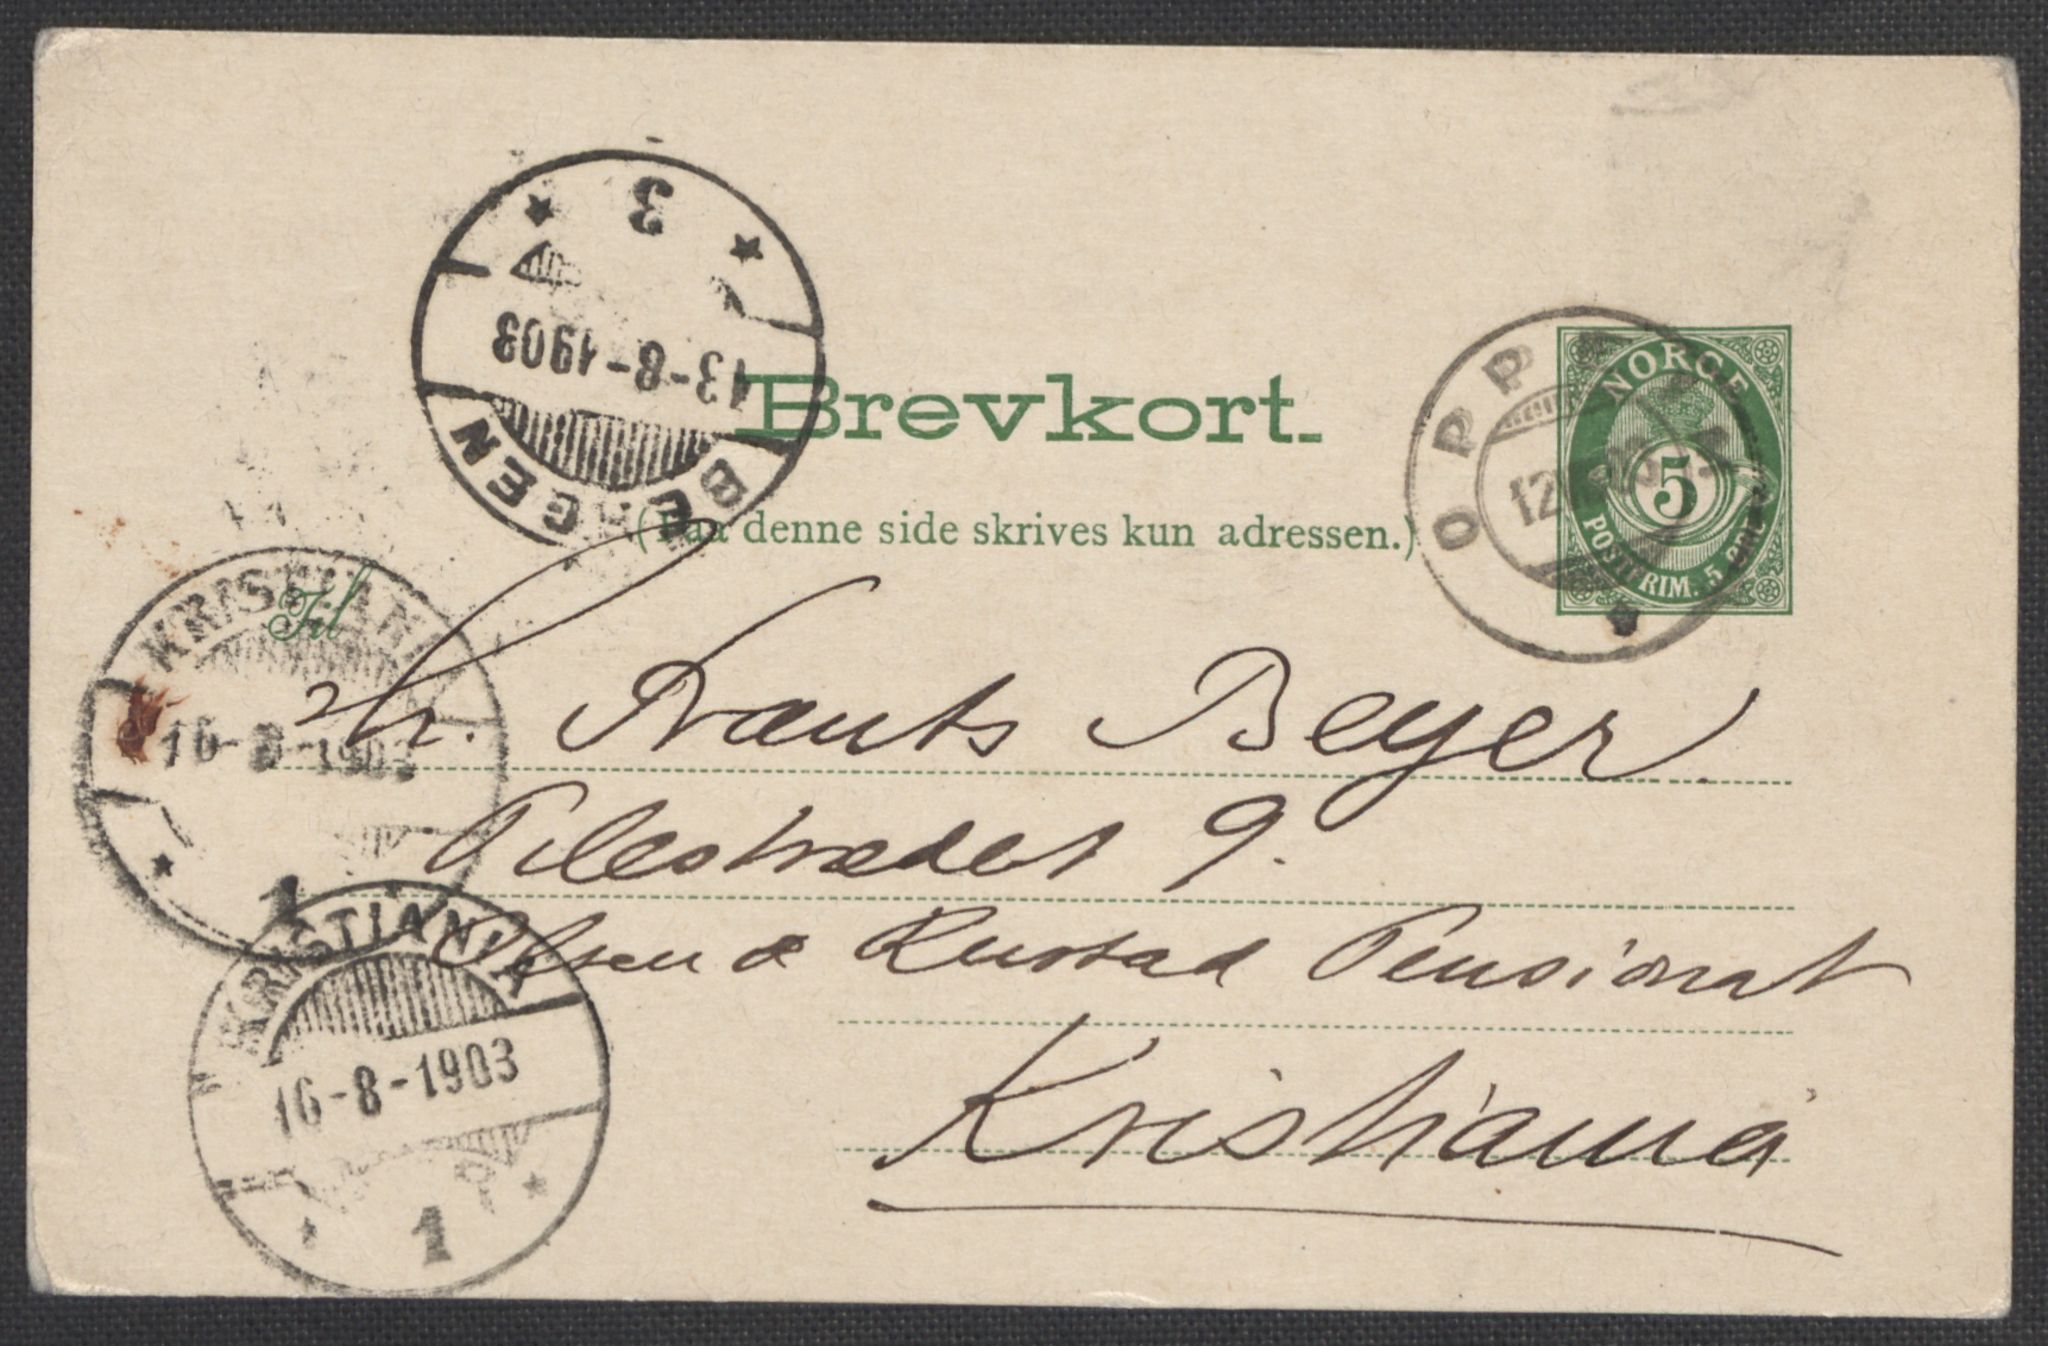 3
13-8-1903
BERGEN
Brevkort.
(Paa denne side skrives kun adressen.)
NORGE
5
POSTFRIM. 5 ØRE
OPP
12
KRISTIANIA
16-8-1903
1
Til
Hr. Frants Beyer.
Pilestrædet 9.
Olsen & Rustad Pensionat
Kristiania
KRISTIANIA
16-8-1903
1